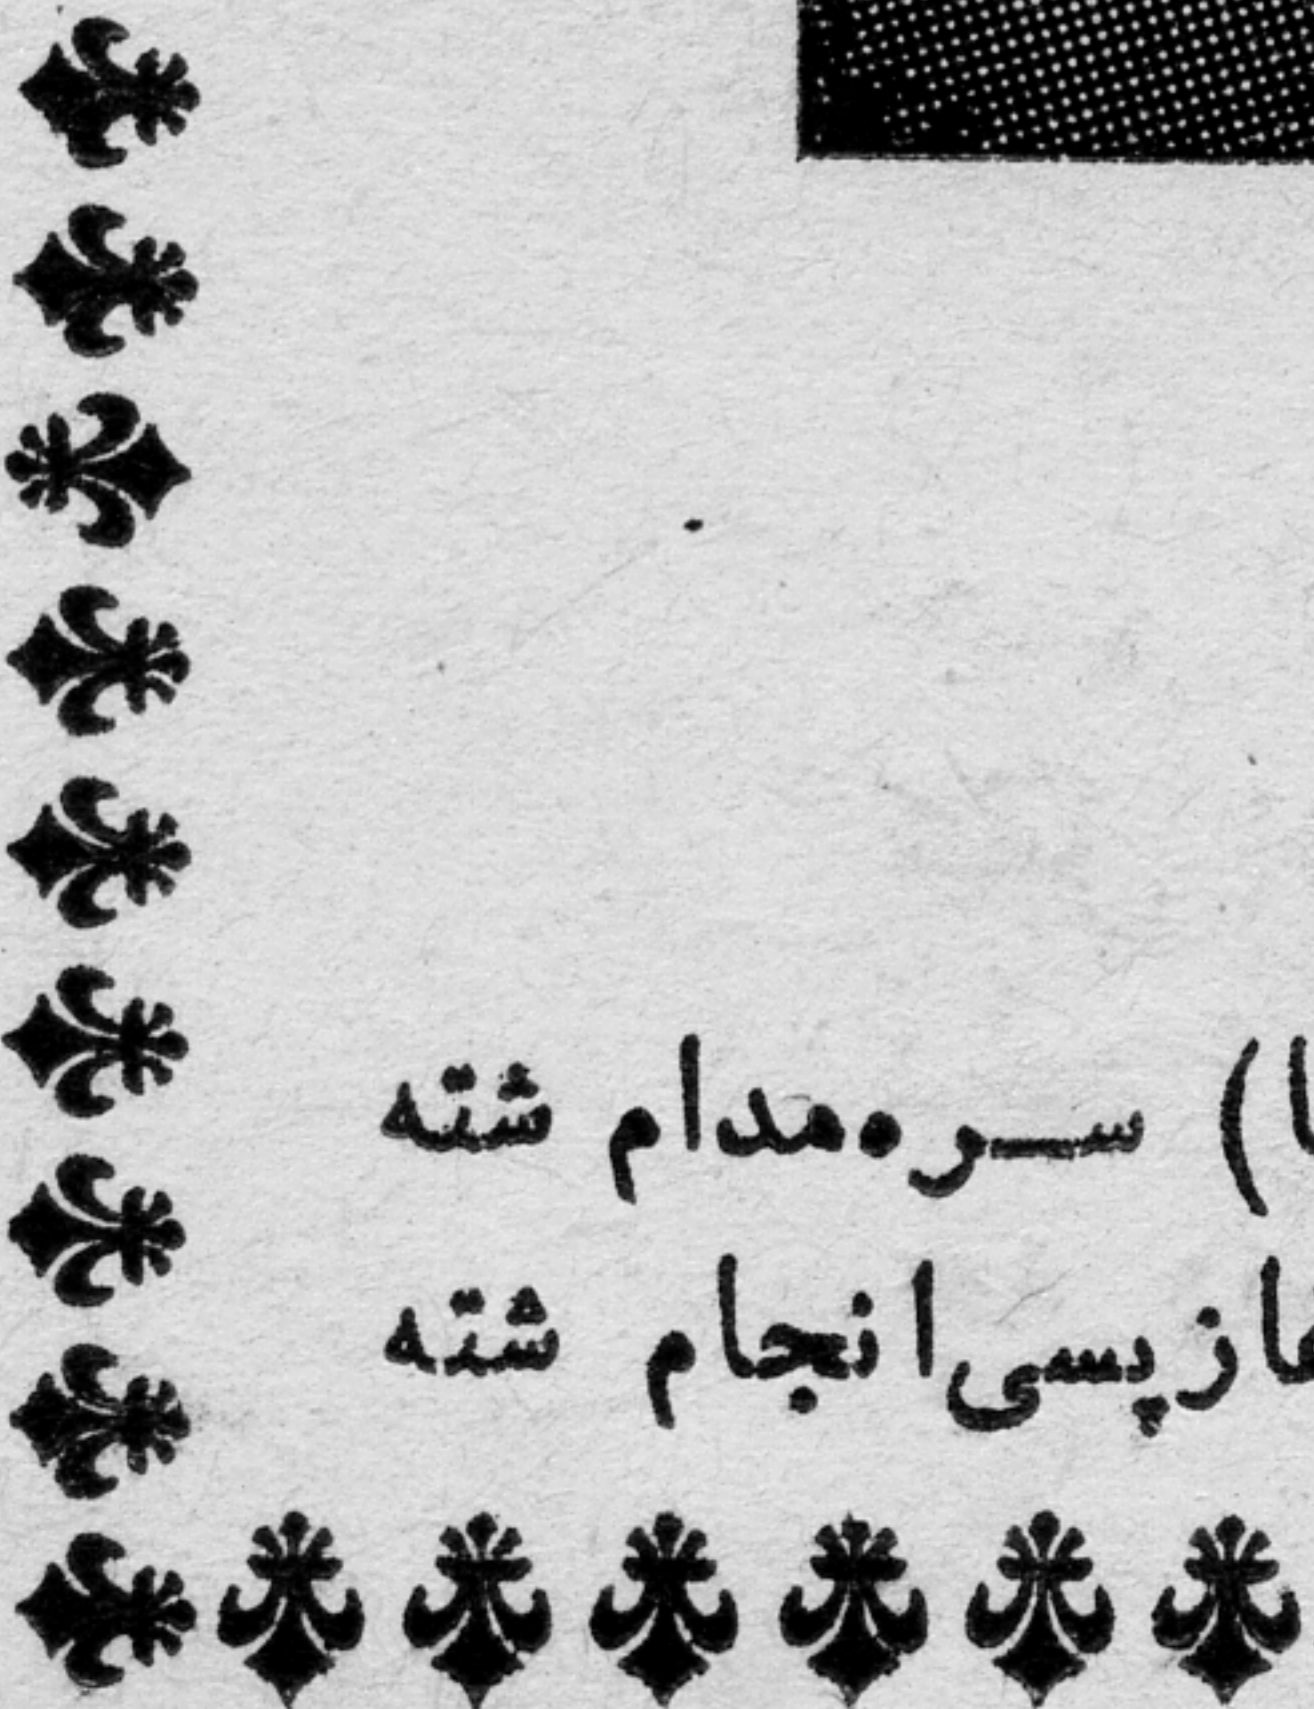 ا) سره‌مدام شته
ازپسی‌انجام شته